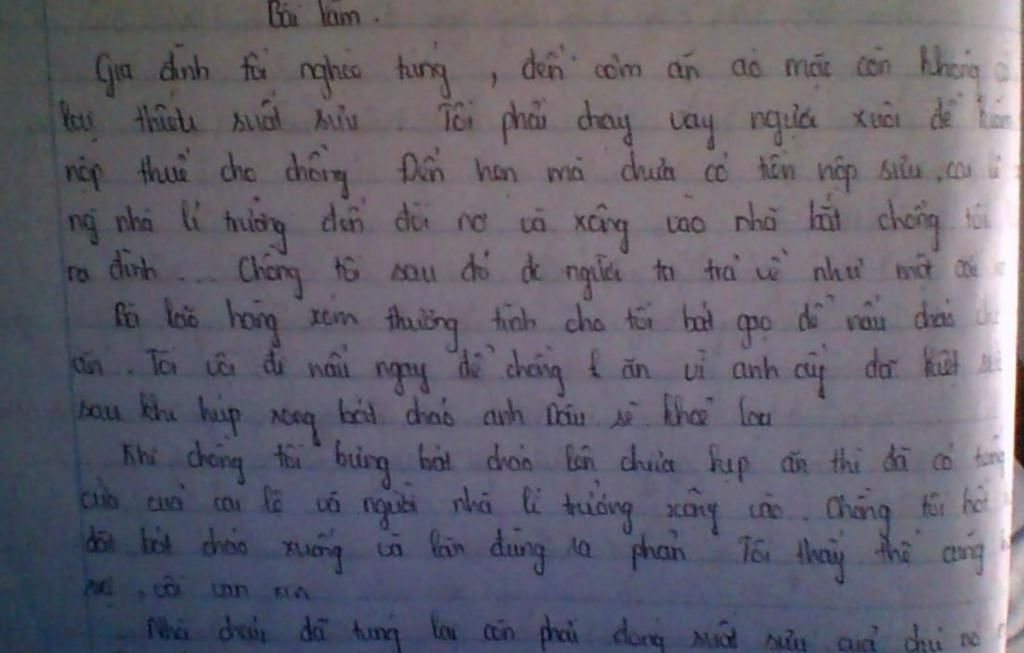 Bài làm.
Gia đình tôi nghèo túng, đến cơm ăn áo mặc còn không
lại thiếu suất sưu. Tôi phải chạy vạy ngược xuôi để
nộp thuế cho chồng Đến hẹn mà chưa có tiền nộp sưu, cai
ng nhà lí trưởng đến đòi nợ và xông vào nhà bắt chồng tôi
ra đình... Chồng tô sau đó đc người ta trả về như một
Bà lão hàng xóm thương tình cho tôi bát gạo để nấu cháo
ăn. Tôi vội đi nấu ngay để chồng t ăn vì anh ấy đã kiệt
sau khi húp xong bát cháo anh Dậu sẽ khoẻ lại
Khi chồng tôi bưng bát cháo lên chưa kịp ăn thì đã có
của cai lệ và người nhà lí trưởng xông vào. Chồng tôi
bát cháo xuống và lăn đùng ra phản Tôi thấy thế cũng
sợ, vội van xin
Nhà cháu đã túng lại còn phải đóng suất sưu của chú nó